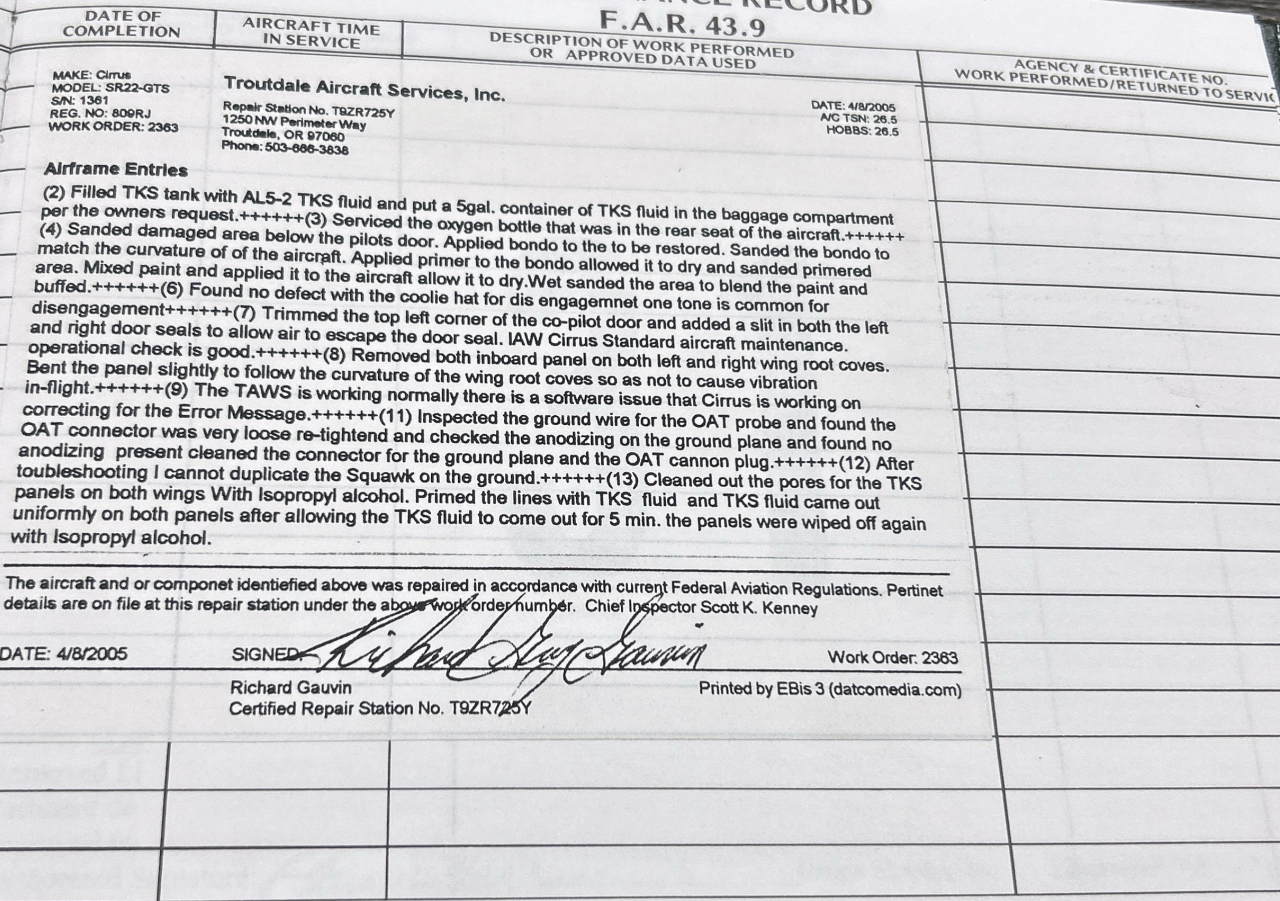 RECORD
F.A.R. 43.9
DATE OF
COMPLETION
AIRCRAFT TIME
IN SERVICE
DESCRIPTION OF WORK PERFORMED
OR APPROVED DATA USED
AGENCY & CERTIFICATE NO.
WORK PERFORMED/RETURNED TO SERVIC
MAKE: Cirrus
MODEL: SR22-GTS
S/N: 1361
REG. NO: 809RJ
WORK ORDER: 2363
Troutdale Aircraft Services, Inc.
Repair Station No. T9ZR725Y
1250 NW Perimeter Way
Troutdale, OR 97060
Phone: 503-666-3838
DATE: 4/8/2005
A/C TSN: 26.5
HOBBS: 26.5
Airframe Entries
(2) Filled TKS tank with AL5-2 TKS fluid and put a 5gal. container of TKS fluid in the baggage compartment
per the owners request.++++++(3) Serviced the oxygen bottle that was in the rear seat of the aircraft.++++++
(4) Sanded damaged area below the pilots door. Applied bondo to the to be restored. Sanded the bondo to
match the curvature of of the aircraft. Applied primer to the bondo allowed it to dry and sanded primered
area. Mixed paint and applied it to the aircraft allow it to dry.Wet sanded the area to blend the paint and
buffed.++++++(6) Found no defect with the coolie hat for dis engagemnet one tone is common for
disengagement++++++(7) Trimmed the top left corner of the co-pilot door and added a slit in both the left
and right door seals to allow air to escape the door seal. IAW Cirrus Standard aircraft maintenance.
operational check is good.++++++(8) Removed both inboard panel on both left and right wing root coves.
Bent the panel slightly to follow the curvature of the wing root coves so as not to cause vibration
in-flight.++++++(9) The TAWS is working normally there is a software issue that Cirrus is working on
correcting for the Error Message.++++++(11) Inspected the ground wire for the OAT probe and found the
OAT connector was very loose re-tightend and checked the anodizing on the ground plane and found no
anodizing present cleaned the connector for the ground plane and the OAT cannon plug.++++++(12) After
toubleshooting I cannot duplicate the Squawk on the ground.++++++(13) Cleaned out the pores for the TKS
panels on both wings With Isopropyl alcohol. Primed the lines with TKS fluid and TKS fluid came out
uniformly on both panels after allowing the TKS fluid to come out for 5 min. the panels were wiped off again
with Isopropyl alcohol.
The aircraft and or componet identiefied above was repaired in accordance with current Federal Aviation Regulations. Pertinet
details are on file at this repair station under the above work order number. Chief Inspector Scott K. Kenney
DATE: 4/8/2005
SIGNED: Richard Guy Gauvin
Work Order: 2363
Richard Gauvin
Printed by EBis 3 (datcomedia.com)
Certified Repair Station No. T9ZR725Y